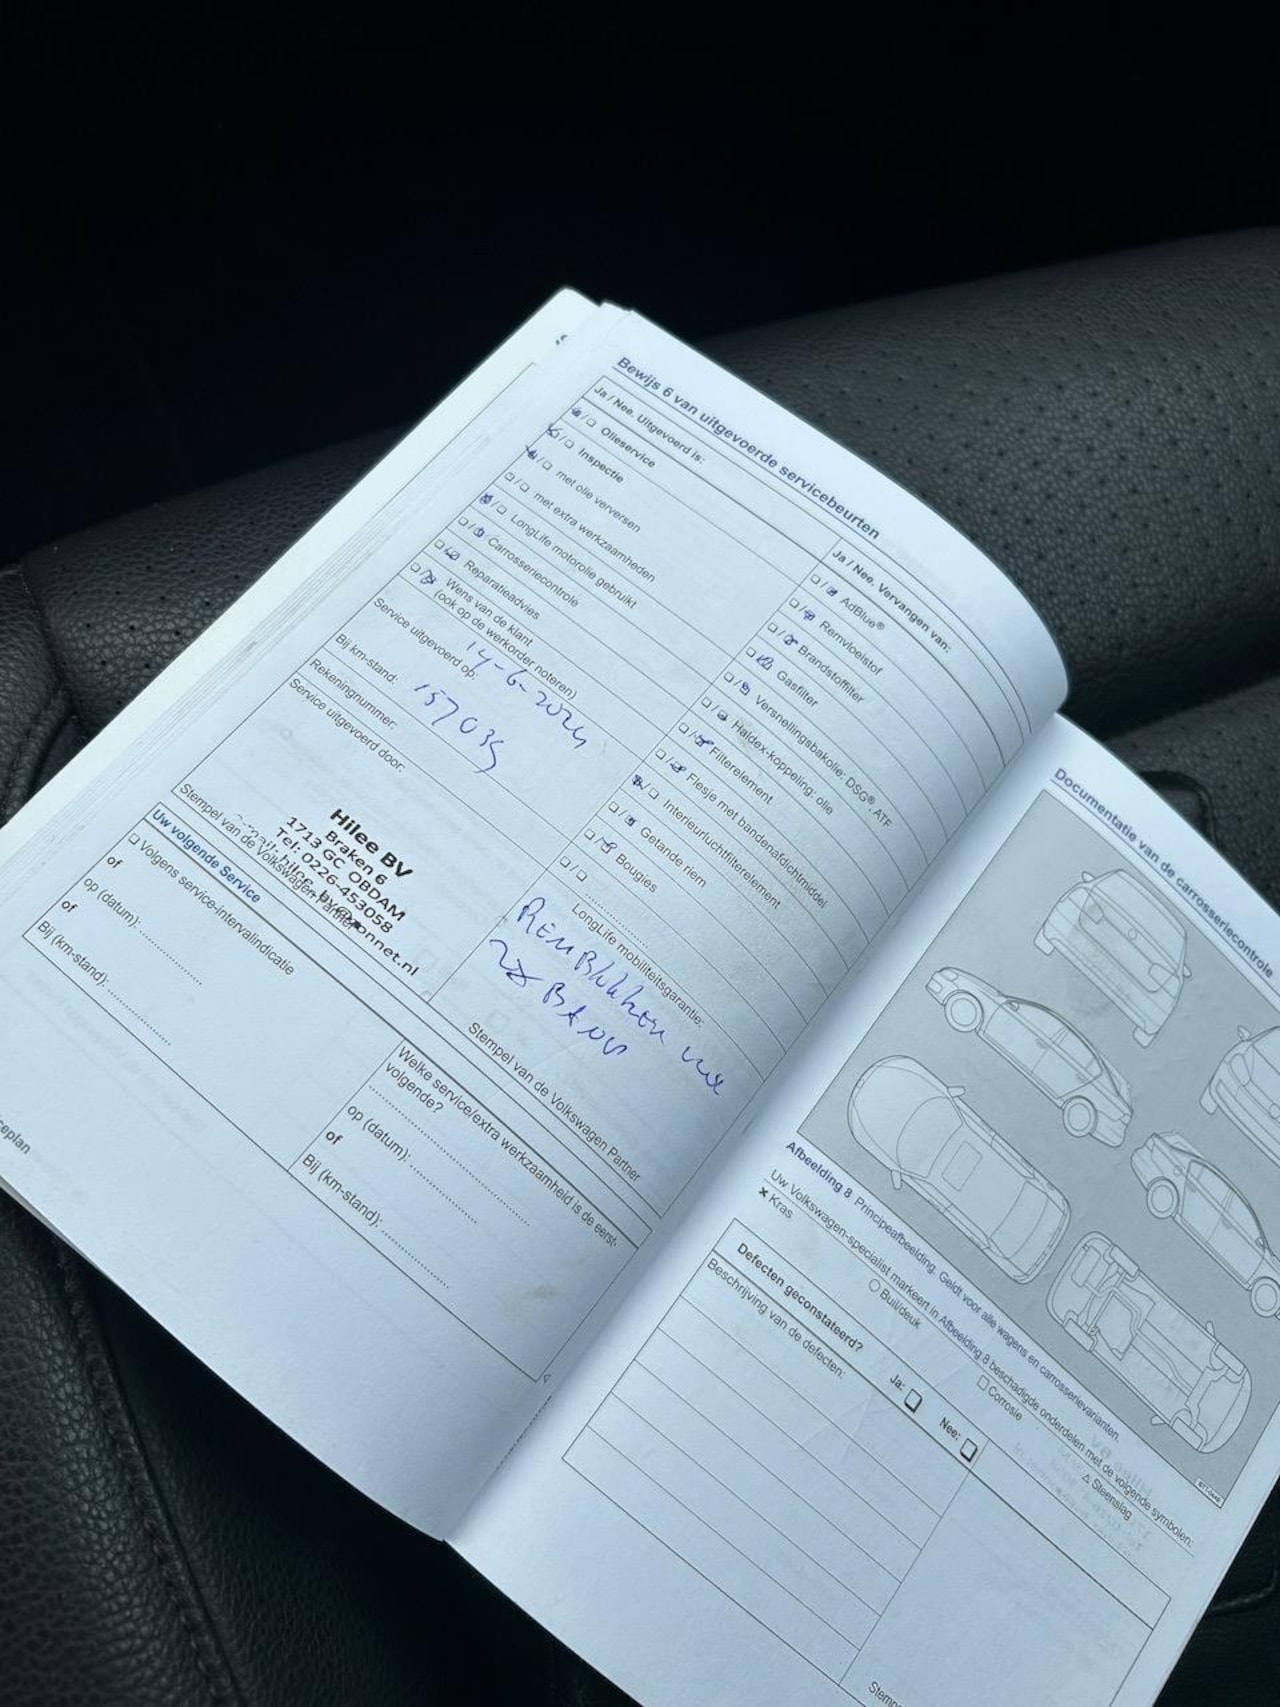 Bewijs 6 van uitgevoerde servicebeurten
Ja / Nee. Uitgevoerd is:
Olieservice
Inspectie
met olie verversen
met extra werkzaamheden
LongLife motorolie gebruikt
Carrosseriecontrole
Reparatieadvies
Wens van de klant
(ook op de werkorder noteren)
Service uitgevoerd op: 14-6-2024
Bij km-stand: 157035
Rekeningnummer:
Service uitgevoerd door:
Hilee BV
Braken 6
1713 GC OBDAM
Tel: 0226-453058
Stempel van de Volkswagen Partner
Ja / Nee. Vervangen van:
AdBlue®
Remvloeistof
Brandstoffilter
Gasfilter
Versnellingsbakolie: DSG®, ATF
Haldex-koppeling: olie
Filterelement
Flesje met bandenafdichtmiddel
Interieurluchtfilterelement
Getande riem
Bougies
LongLife mobiliteitsgarantie:
Stempel van de Volkswagen Partner
Uw volgende Service
Volgens service-intervalindicatie
of
op (datum):
of
Bij (km-stand):
Welke service/extra werkzaamheid is de eerst-
volgende?
op (datum):
of
Bij (km-stand):
Documentatie van de carrosseriecontrole
Afbeelding 8 Principeafbeelding. Geldt voor alle wagens en carrosserievarianten.
Uw Volkswagen-specialist markeert in Afbeelding 8 beschadigde onderdelen met de volgende symbolen:
× Kras
○ Buil/deuk
□ Corrosie
△ Steenslag
Defecten geconstateerd?
Ja:
Nee:
Beschrijving van de defecten: